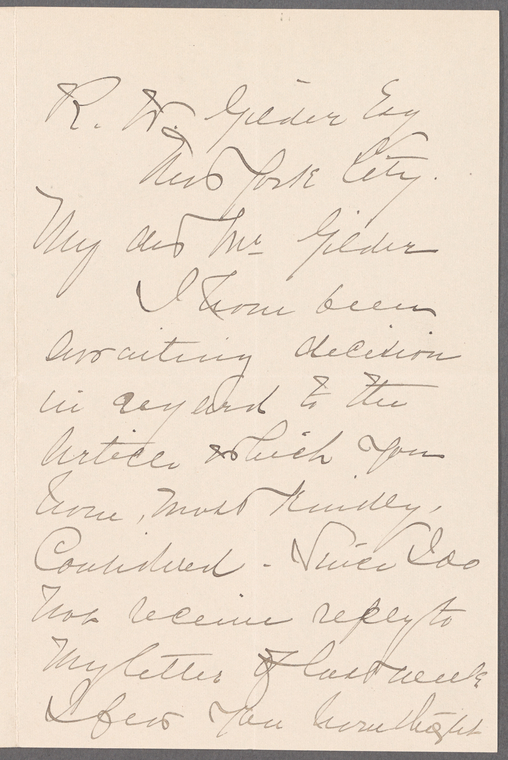 R. W. Gilder Esq
New York City.
My dear Mr Gilder
I have been
awaiting decision
in regard to the
Article, which you
have, most kindly,
Considered - Since I do
not receive reply to
My letter of last week
I fear you have thought